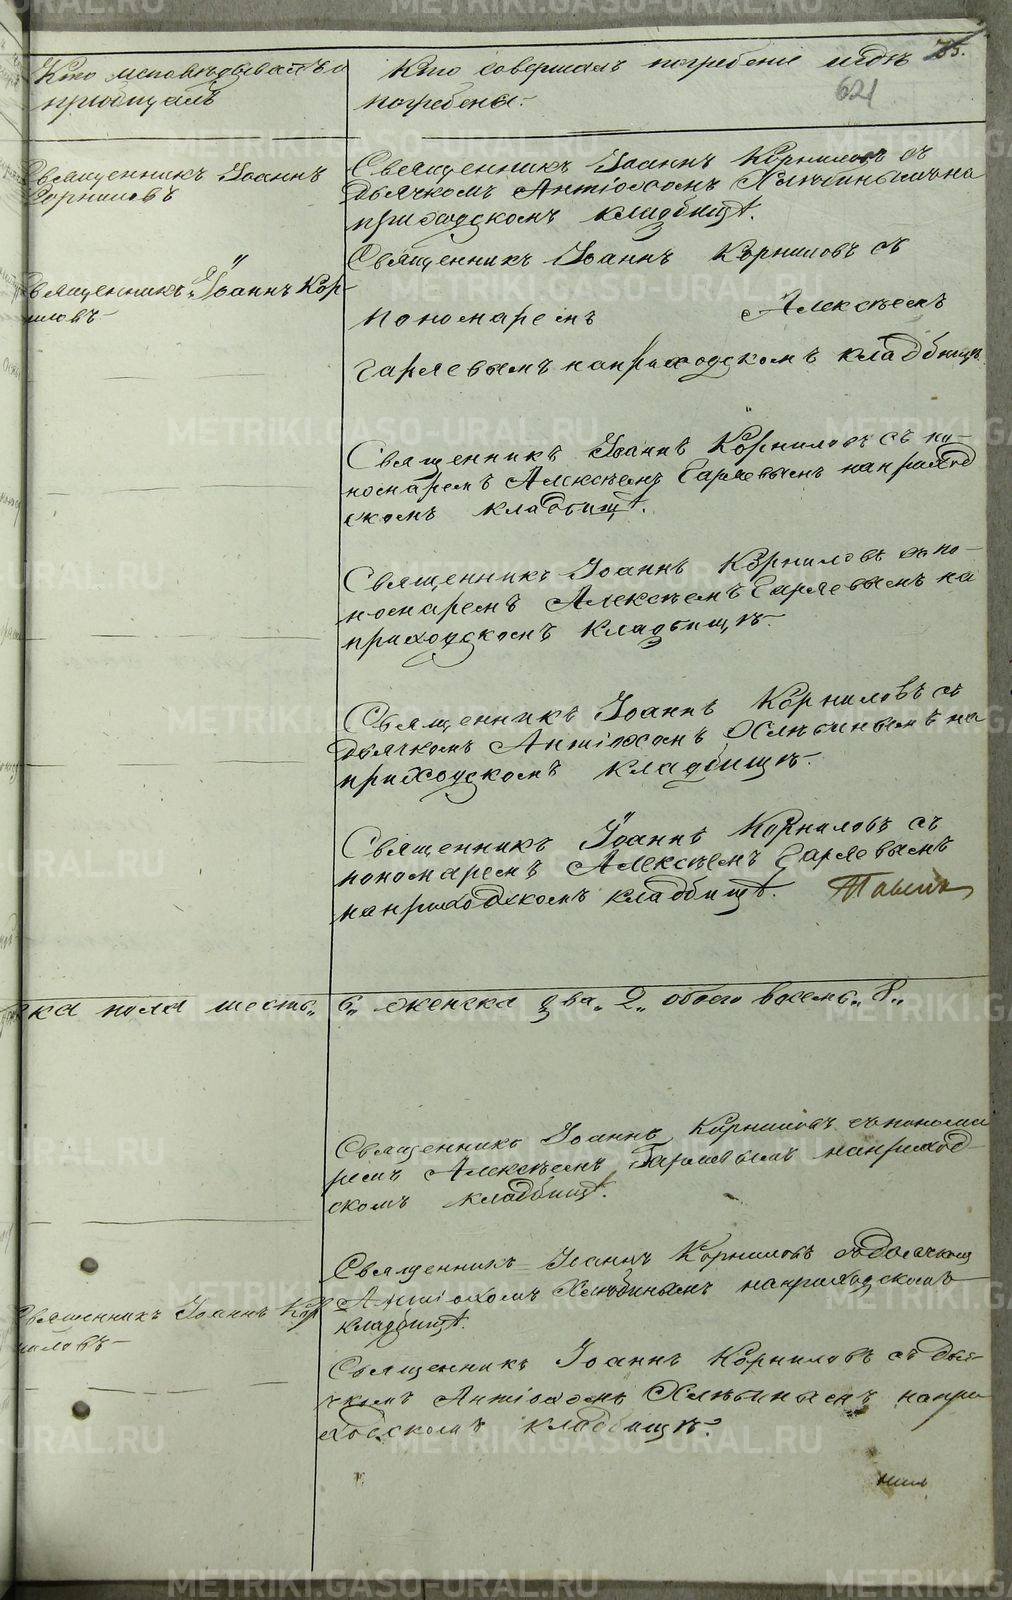 Кто исповѣдывалъ и
пріобщалъ
Кто совершалъ погребеніе и гдѣ
погребены.
75.
621
Священникъ Іоаннъ
Корниловъ
Священникъ Іоаннъ Корниловъ съ
дьячкомъ Антіохомъ Хлѣбинымъ на
приходскомъ кладбищѣ.
Священникъ Іоаннъ Кор-
ниловъ
Священникъ Іоаннъ Корниловъ съ
пономаремъ Алексѣемъ
Гаряевымъ на приходскомъ кладбищѣ
Священникъ Іоаннъ Корниловъ съ по-
номаремъ Алексѣемъ Гаряевымъ на приход
скомъ кладбищѣ.
Священникъ Іоаннъ Корниловъ съ по-
номаремъ Алексѣемъ Гаряевымъ на
приходскомъ кладбищѣ.
Священникъ Іоаннъ Корниловъ съ
дьячкомъ Антіохомъ Хлѣбинымъ на
приходскомъ кладбищѣ.
Священникъ Іоаннъ Корниловъ съ
пономаремъ Алексѣемъ Гаряевымъ
на приходскомъ кладбищѣ.
ска пола шесть „ 6 „ женска два „ 2 „ обоего восемь „ 8 „
Священникъ Іоаннъ Корниловъ съ понома
ремъ Алексѣемъ Гаряевымъ на приход
скомъ кладбищѣ.
Священникъ Іоаннъ Кор
ниловъ
Священникъ Іоаннъ Корниловъ съ дьячкомъ
Антіохомъ Хлѣбинымъ на приходскомъ
кладбищѣ.
Священникъ Іоаннъ Корниловъ съ дья-
чкомъ Антіохомъ Хлѣбинымъ на при
ходскомъ кладбищѣ.
METRIKI.GASO-URAL.RU